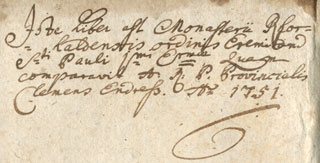 Iste liber est Monasterii Rhor-
haldensis ordinis Eremitarum
Sti Pauli primi Eremitae quem
comparavit A. R. P. Provincialis
Clemens Endress. Ao 1751.